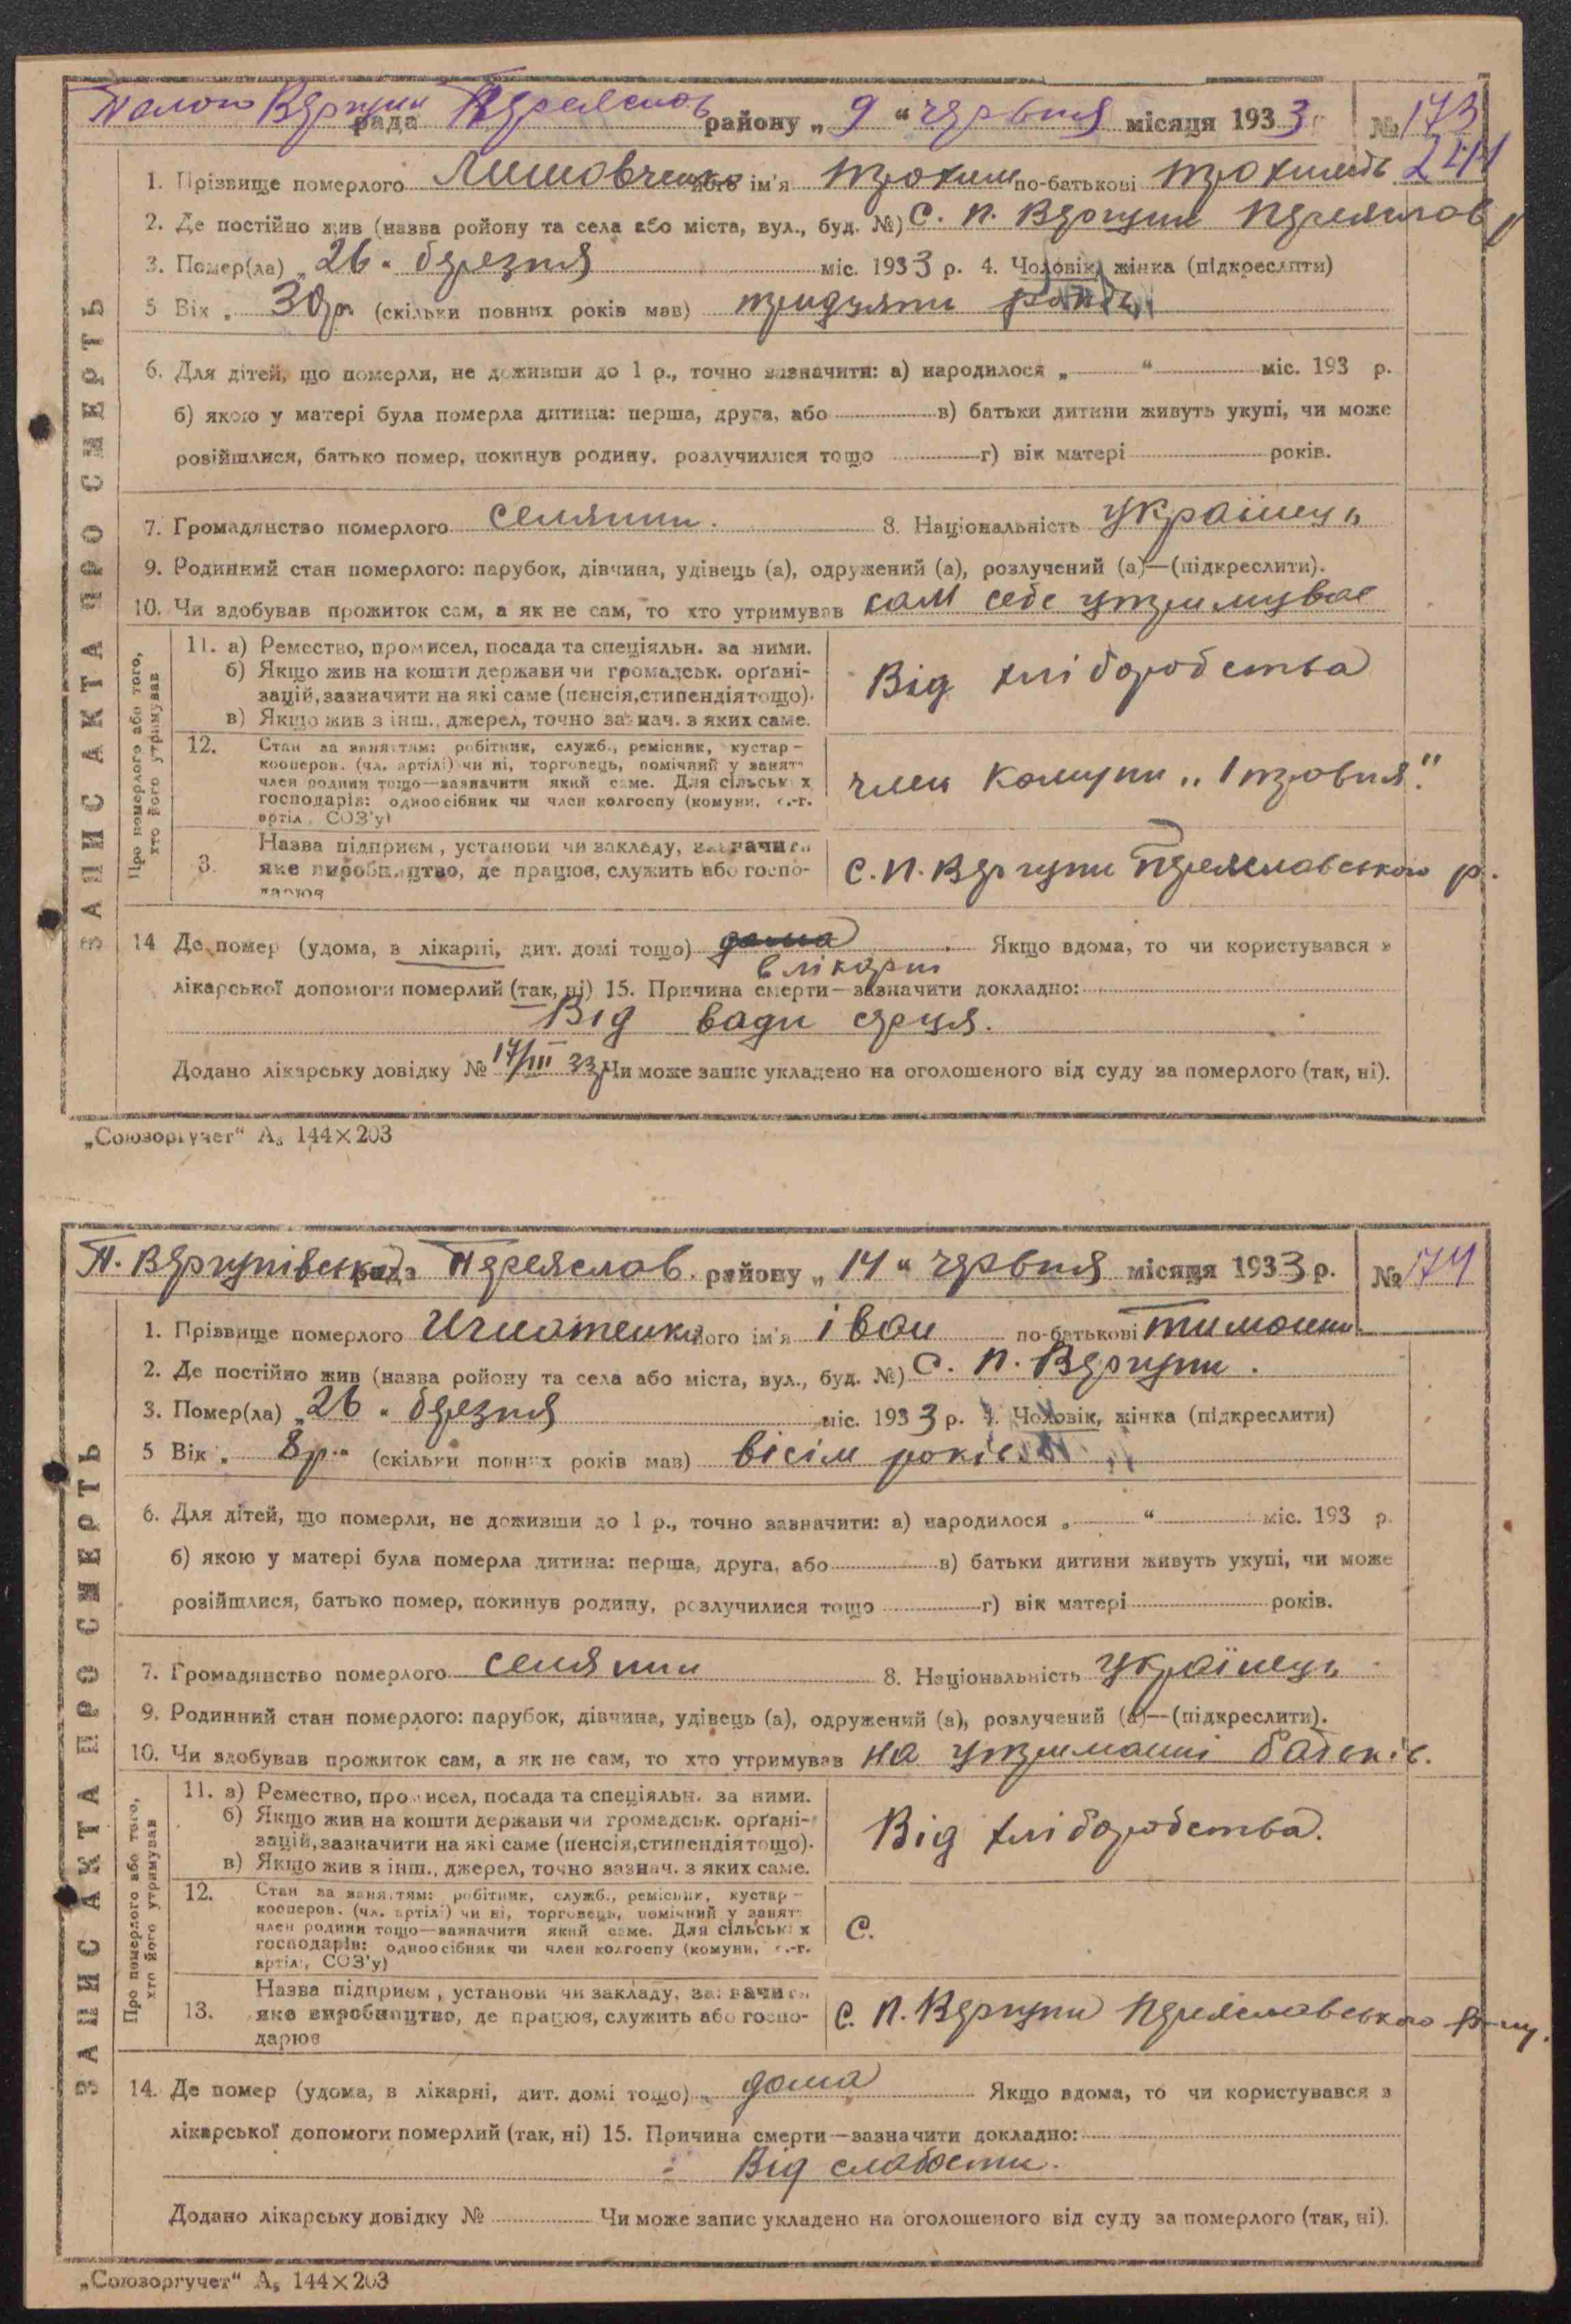 ЗАПИС АКТА ПРО СМЕРТЬ
рада Переяслов району „ 9 “ червня місяця 1933 р. № 173
241
1. Прізвище померлого його ім'я Трохим по-батькові
2. Де постійно жив (назва ройону та села або міста, вул., буд. №) С. П. Вергуни Переяслов р
3. Помер(ла) „ 26 “ березня міс. 1933 р. 4. Чоловік, жінка (підкреслити)
5 Вік „ 30 р. (скільки повних років мав) тридцять років
6. Для дітей, що померли, не доживши до 1 р., точно зазначити: а) народилося „ “ міс. 193 р.
б) якою у матері була померла дитина: перша, друга, або в) батьки дитини живуть укупі, чи може
розійшлися, батько помер, покинув родину, розлучилися тощо г) вік матері років.
7. Громадянство померлого селянин. 8. Національність українець
9. Родинний стан померлого: парубок, дівчина, удівець (а), одружений (а), розлучений (а)—(підкреслити).
10. Чи здобував прожиток сам, а як не сам, то хто утримував сам себе утримував
Про померлого або того, хто його утримував
11. а) Ремество, промисел, посада та спеціяльн. за ними.
б) Якщо жив на кошти держави чи громадськ. орґані-
зацій, зазначити на які саме (пенсія, стипендія тощо).
в) Якщо жив з інш., джерел, точно зазнач. з яких саме.
Від хліборобства
12. Стан за заняттям: робітник, служб., ремісник, кустар –
кооперов. (чл. артілі) чи ні, торговець, помічний у занят-
член родини тощо—зазначити який саме. Для сільськ х
господарів: одноосібник чи член колгоспу (комуни, с.-г.
артіл , СОЗ'у)
член комуни „1 травня“
3. Назва підприєм , установи чи закладу, зазначити
яке виробництво, де працює, служить або госпо-
дарює
С. П. Вергуни Переяславського р.
14 Де помер (удома, в лікарні, дит. домі тощо) дома Якщо вдома, то чи користувався з
в лікарні
лікарської допомоги померлий (так, ні) 15. Причина смерти—зазначити докладно:
Від вади серця.
Додано лікарську довідку № 17/III 33 р Чи може запис укладено на оголошеного від суду за померлого (так, ні).
„Союзоргучет“ А₅ 144×203
ЗАПИС АКТА ПРО СМЕРТЬ
П. Вергунівська рада Переяслав. району „ 14 “ червня місяця 1933 р. № 174
1. Прізвище померлого Игнатенко його ім'я іван по-батькові
2. Де постійно жив (назва ройону та села або міста, вул., буд. №) С. П. Вергуни.
3. Помер(ла) „ 26 “ березня міс. 1933 р. 4. Чоловік, жінка (підкреслити)
5 Вік „ 8 р. “ (скільки повних років мав) вісім років
6. Для дітей, що померли, не доживши до 1 р., точно зазначити: а) народилося „ “ міс. 193 р.
б) якою у матері була померла дитина: перша, друга, або в) батьки дитини живуть укупі, чи може
розійшлися, батько помер, покинув родину, розлучилися тощо г) вік матері років.
7. Громадянство померлого селянин 8. Національність українець
9. Родинний стан померлого: парубок, дівчина, удівець (а), одружений (а), розлучений (а)—(підкреслити).
10. Чи здобував прожиток сам, а як не сам, то хто утримував на утриманні батьків.
Про померлого або того, хто його утримував
11. а) Ремество, промисел, посада та спеціяльн. за ними.
б) Якщо жив на кошти держави чи громадськ. орґані-
зацій, зазначити на які саме (пенсія, стипендія тощо).
в) Якщо жив з інш., джерел, точно зазнач. з яких саме.
Від хліборобства.
12. Стан за заняттям: робітник, служб., ремісник, кустар –
кооперов. (чл. артілі) чи ні, торговець, помічний у занят-
член родини тощо—зазначити який саме. Для сільськ х
господарів: одноосібник чи член колгоспу (комуни, с.-г.
артіл , СОЗ'у)
С.
13. Назва підприєм , установи чи закладу, зазначити
яке виробництво, де працює, служить або госпо-
дарює
С. П. Вергуни Переяславського р-ну.
14. Де помер (удома, в лікарні, дит. домі тощо) дома Якщо вдома, то чи користувався з
лікарської допомоги померлий (так, ні) 15. Причина смерти—зазначити докладно:
Від слабости.
Додано лікарську довідку № Чи може запис укладено на оголошеного від суду за померлого (так, ні).
„Союзоргучет“ А₅ 144×203